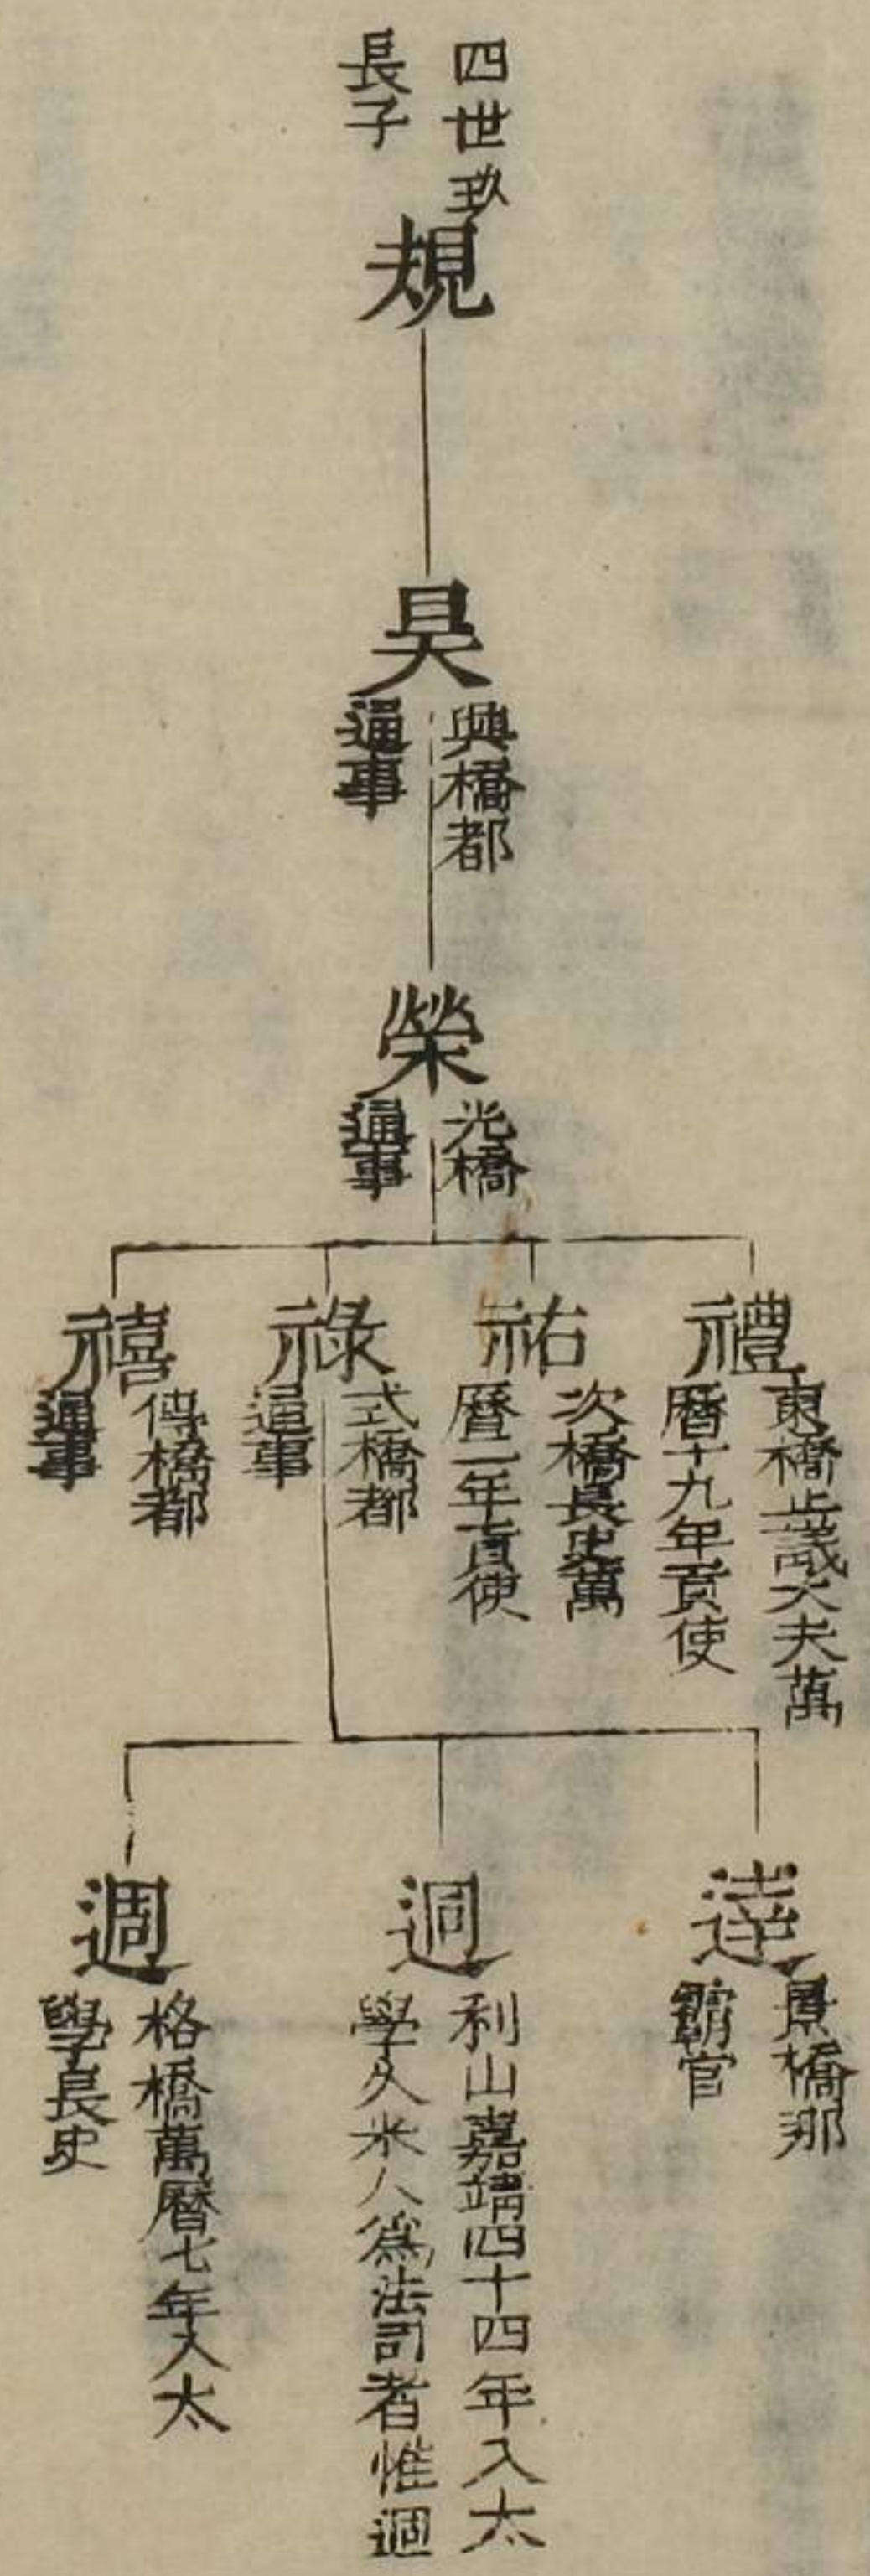 四世玖
長子
規
昊
興橋都
通事
榮
光橋
通事
禮
東橋正議大夫萬
曆十九年貢使
祐
次橋長史萬
曆二年貢使
祿
式橋都
通事
禧
傳橋都
通事
達
景橋那
霸官
迵
利山嘉靖四十四年入太
學久米人為法司者惟迵
週
格橋萬曆七年入太
學長史